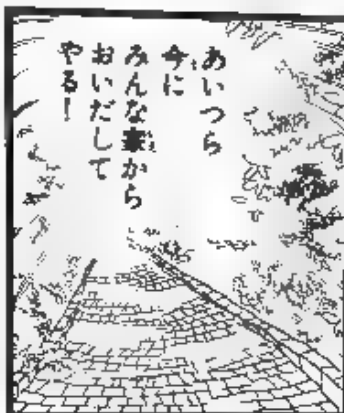 あいつら
今に
みんな家から
おいだして
やる!